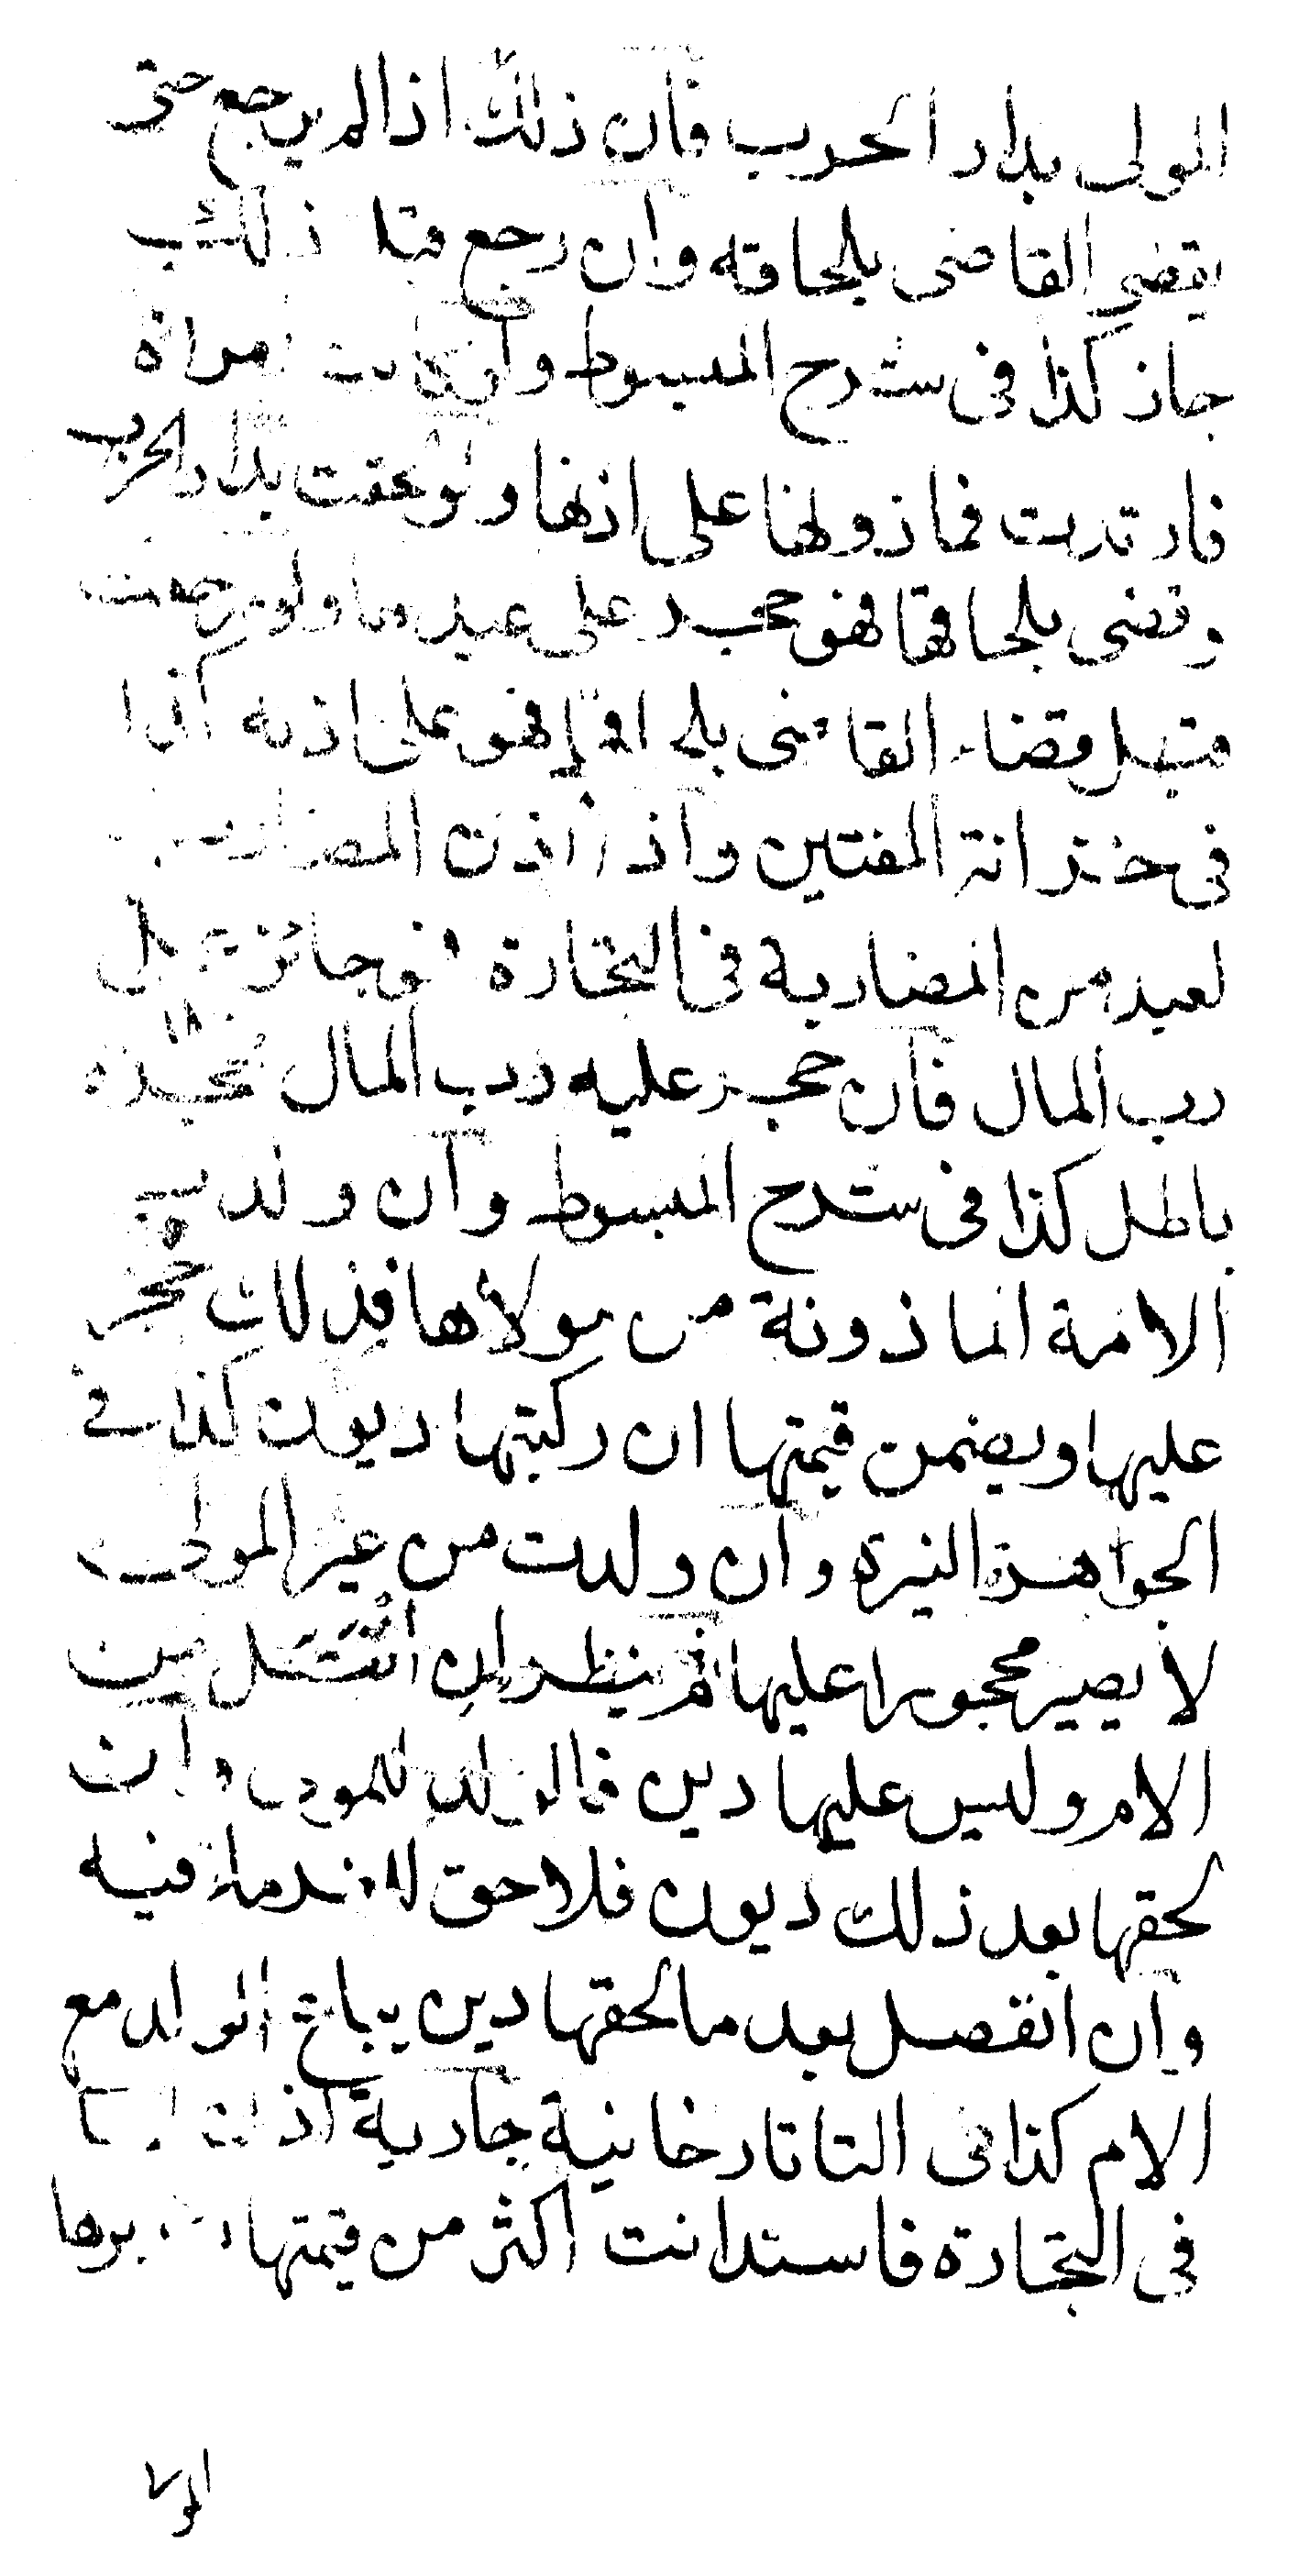 المولى بدار الحرب فان ذلك اذا لم يرجع حتى
يقضي القاضى بلحاقه وان رجع قبل ذلك
جاز كذا فى شرح المبسوط وان كانت امراة
فارتدت فماذونها على اذنها ولو لحقت بدار الحرب
وقضى بلحاقها فهو حجر على عبدها ولو رجعت
قبل قضاء القاضى بلحاقها فهو على اذنه كذا
فى خزانة المفتين واذا اذن المضارب
لعبد من المضاربة فى التجارة فهو جائز على
رب المال فان حجر عليه رب المال فحجره
باطل كذا فى شرح المبسوط وان ولدت
الامة الماذونة من مولاها فذلك حجر
عليها ويضمن قيمتها ان ركبتها ديون كذا فى
الجواهرة النيرة وان ولدت من غير المولى
لا يصير محجورا عليها ثم ينظر ان انفصل من
الام وليس عليها دين فالولد للمولى وان
لحقها بعد ذلك ديون فلا حق للغرماء فيه
وان انفصل بعد ما لحقها دين يباع الولد مع
الام كذا فى التاتارخانية جارية اذن لها
فى التجارة فاستدانت اكثر من قيمتها فدبرها